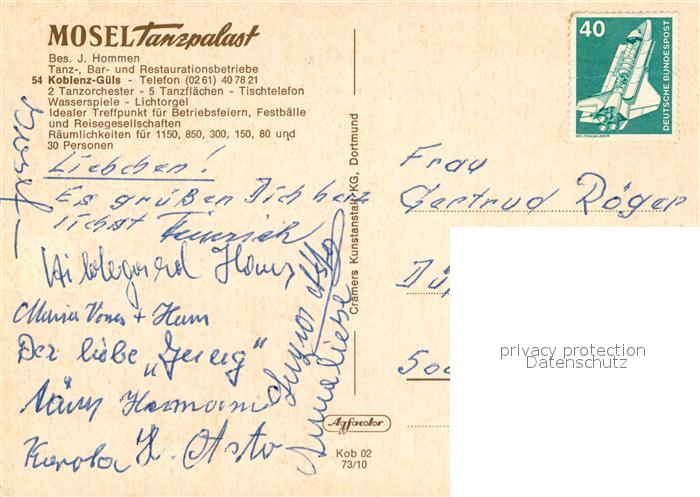 MOSEL Tanzpalast
Bes. J. Hommen
Tanz-, Bar- und Restaurationsbetriebe
54 Koblenz-Güls - Telefon (02 61) 40 78 21
2 Tanzorchester - 5 Tanzflächen - Tischtelefon
Wasserspiele - Lichtorgel
Idealer Treffpunkt für Betriebsfeiern, Festbälle
und Reisegesellschaften
Räumlichkeiten für 1150, 850, 300, 150, 80 und
30 Personen
Liebchen!
Es grüßen Dich herz
lichst Heinrich
Hildegard Hans
Maria + Hans
Der liebe „Georg"
Hermann
Karola H. Asto
Josef
Asta
Anneliese
Cramers Kunstanstalt KG, Dortmund
Agfacolor
Kob 02
73/10
40
DEUTSCHE BUNDESPOST
WELTRAUMLABOR
Frau
Gertrud Röger
Dü
500
privacy protection
Datenschutz